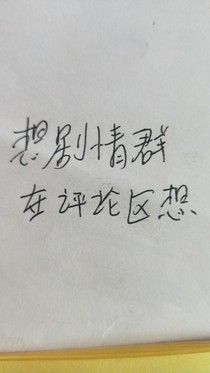 想剧情群
在评论区想